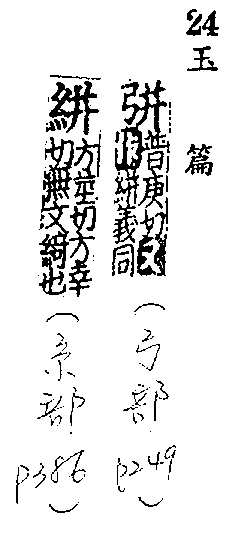 24玉篇
弸普庚切
絣義同
(弓部
p249)
絣方莖切方幸
切無文綺也
(糸部
p386)